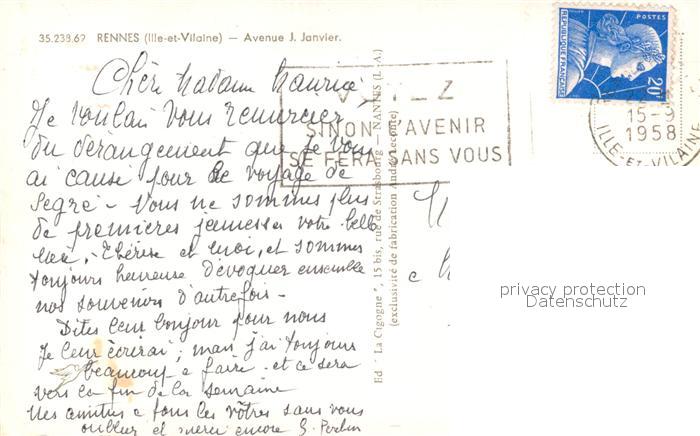 35.238.69 RENNES (Ille-et-Vilaine) — Avenue J. Janvier.
Chère Madame Maurice
Je voulais vous remercier
du dérangement que je vous
ai causé pour le voyage de
Segré - Vous ne sommes plus
de premières jeunesses votre belle
Thérèse et moi, et sommes
toujours heureuse d'évoquer ensemble
nos souvenirs d'autrefois -
Dites leur bonjour pour nous
Je leur écrirai ; mais j'ai toujours
beaucoup a faire. et ce sera
vers la fin de la semaine
Mes amitiés a tous les vôtres sans vous
oublier et merci encore G.
SINON L'AVENIR
SE FERA SANS VOUS
Ed. "La Cigogne", 15 bis, rue de Strasbourg — NANTES (L.-A.)
(exclusivité de fabrication André Leconte)
REPUBLIQUE FRANÇAISE
POSTES
20F
15-9
1958
ILLE-ET-VILAINE
privacy protection
Datenschutz